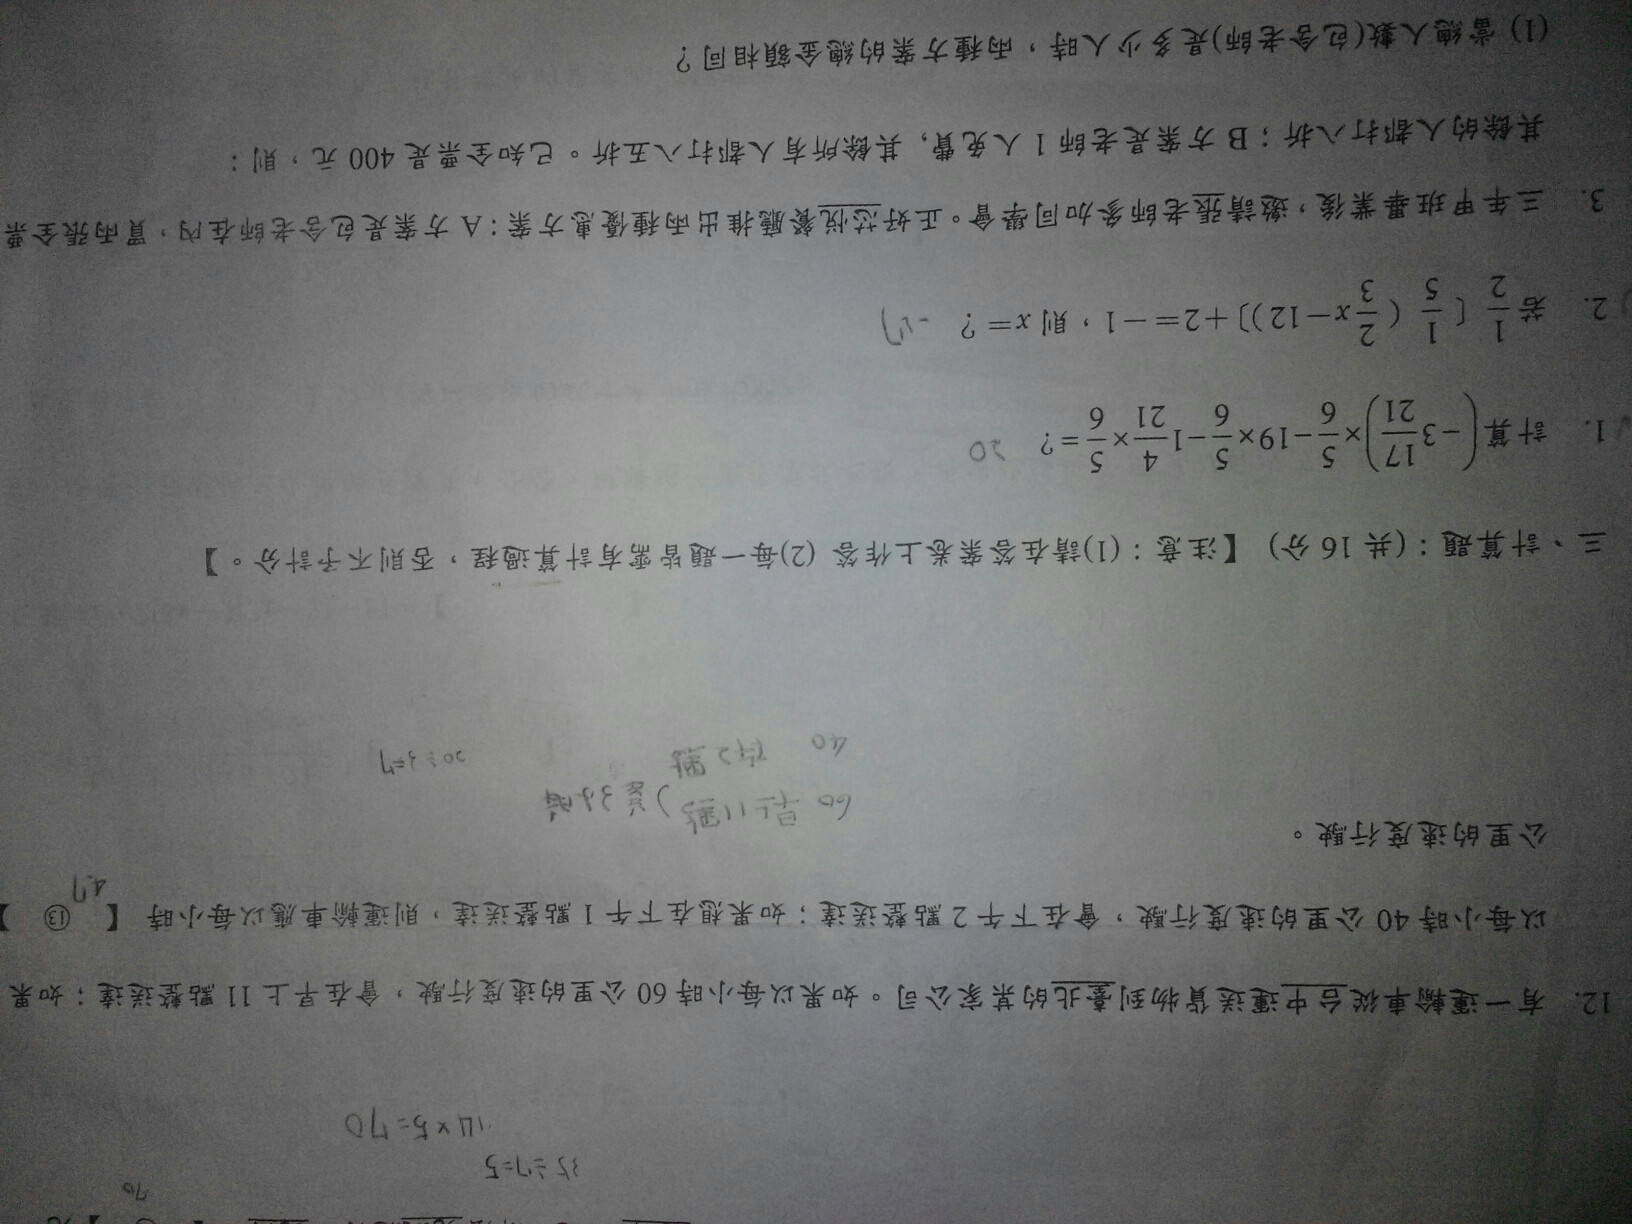 35÷7=5
14×5=70
12. 有一運輸車從台中運送貨物到臺北的某家公司。如果以每小時 60 公里的速度行駛，會在早上 11 點整送達；如果
以每小時 40 公里的速度行駛，會在下午 2 點整送達；如果想在下午 1 點整送達，則運輸車應以每小時【 ⑬ 】
公里的速度行駛。
60 早上11點 差3小時
40 下午2點
三、計算題：(共 16 分) 【注意：(1)請在答案卷上作答 (2)每一題皆需有計算過程，否則不予計分。】
1. 計算(−3 17/21)×5/6−19×5/6−1 4/21×5/6=? 20
2. 若 1/2〔1/5（2/3x−12)〕+2=−1，則 x=?
3. 三年甲班畢業後，邀請張老師參加同學會。正好芯悅餐廳推出兩種優惠方案：A 方案是包含老師在內，買兩張全票
其餘的人都打八折；B 方案是老師 1 人免費，其餘所有人都打八五折。已知全票是 400 元，則：
(1) 當總人數(包含老師)是多少人時，兩種方案的總金額相同？